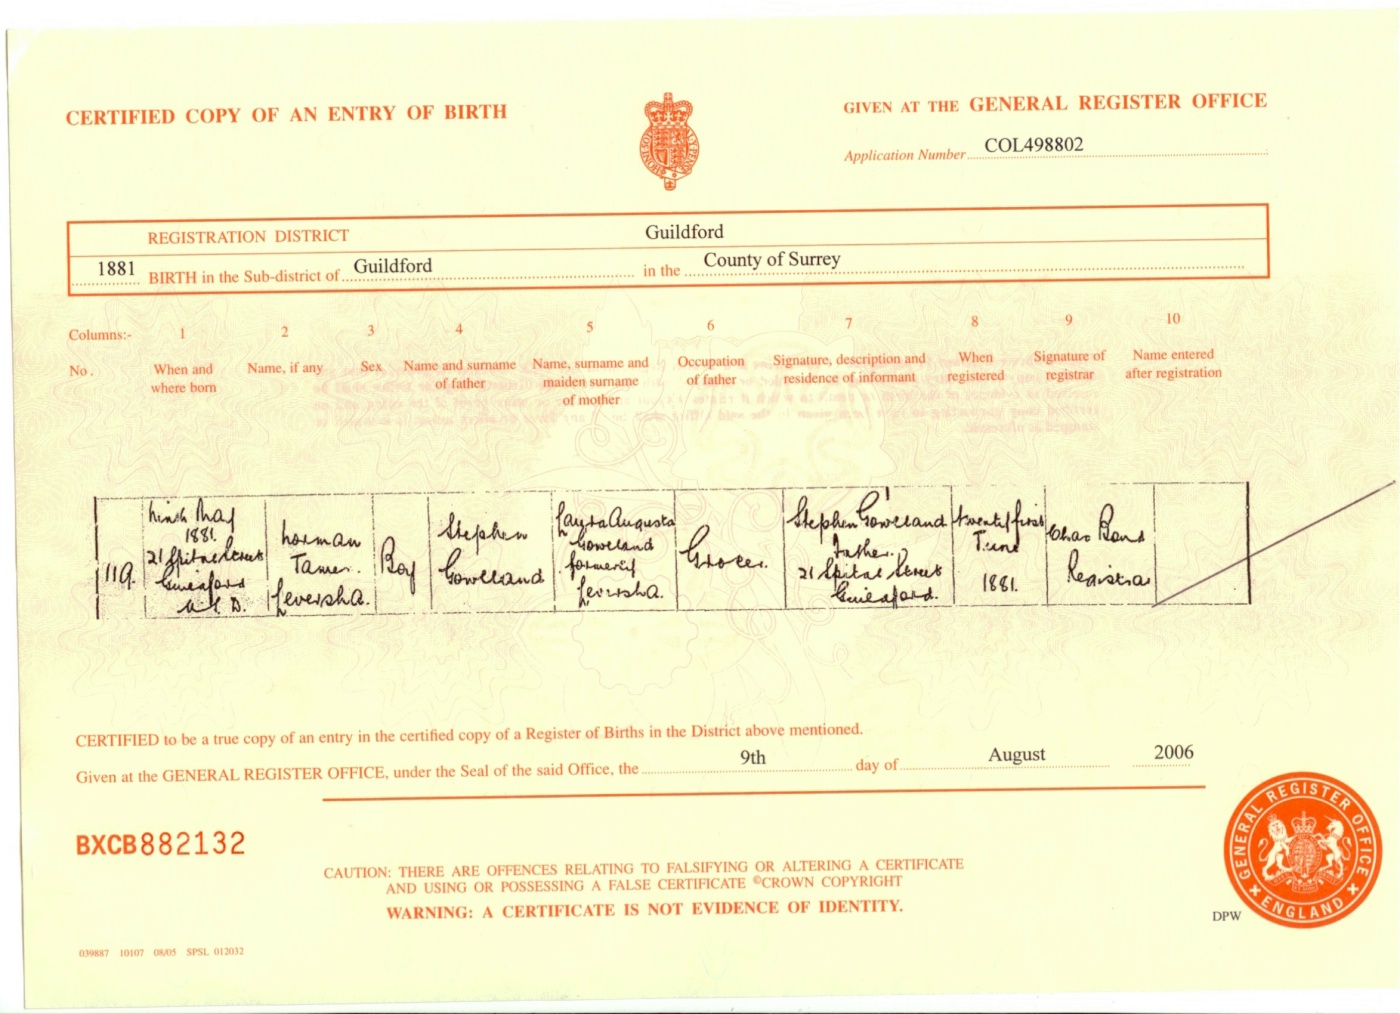 CERTIFIED COPY OF AN ENTRY OF BIRTH
GIVEN AT THE GENERAL REGISTER OFFICE
Application Number COL498802
REGISTRATION DISTRICT Guildford
1881 BIRTH in the Sub-district of Guildford in the County of Surrey
Columns:- 1 2 3 4 5 6 7 8 9 10
No. When and where born
Name, if any
Sex
Name and surname of father
Name, surname and maiden surname of mother
Occupation of father
Signature, description and residence of informant
When registered
Signature of registrar
Name entered after registration
119.
Ninth May
1881.
21 Spital Street
Guildford
U.S.D.
Norman
Tamer.
Leversha.
Boy
Stephen
Gowland
Laura Augusta
Gowland
formerly
Leversha.
Grocer.
Stephen Gowland
Father.
21 Spital Street
Guildford.
Twenty first
June
1881.
Chas Bond
Registrar
CERTIFIED to be a true copy of an entry in the certified copy of a Register of Births in the District above mentioned.
Given at the GENERAL REGISTER OFFICE, under the Seal of the said Office, the 9th day of August 2006
BXCB882132
CAUTION: THERE ARE OFFENCES RELATING TO FALSIFYING OR ALTERING A CERTIFICATE
AND USING OR POSSESSING A FALSE CERTIFICATE ©CROWN COPYRIGHT
WARNING: A CERTIFICATE IS NOT EVIDENCE OF IDENTITY.
GENERAL REGISTER OFFICE
ENGLAND
DPW
039887 10107 08/05 SPSL 012032